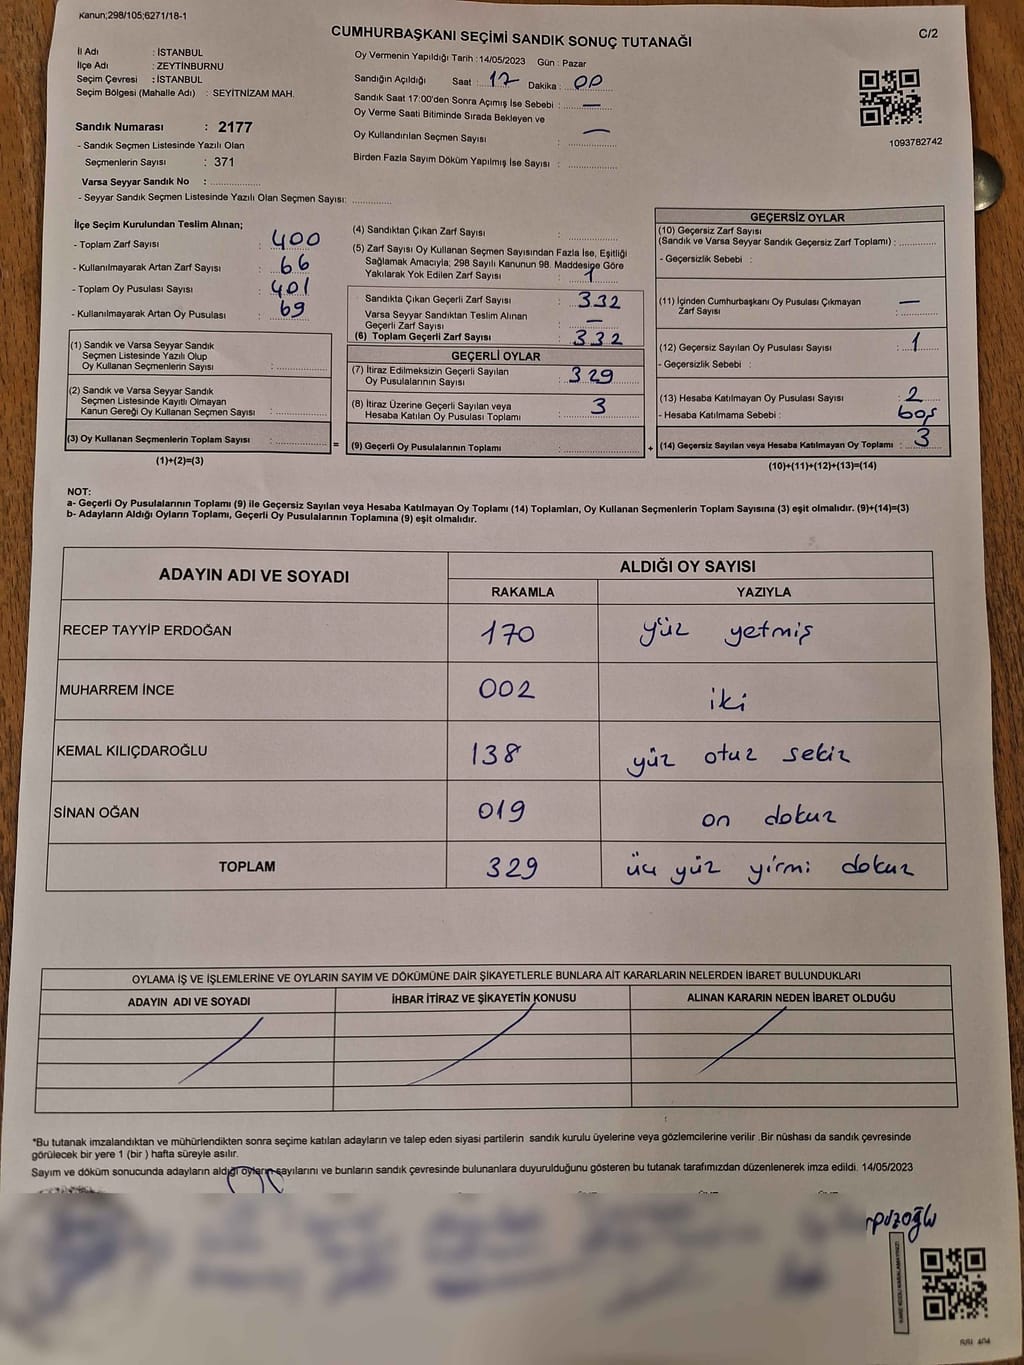 Kanun;298/105;6271/18-1
CUMHURBAŞKANI SEÇİMİ SANDIK SONUÇ TUTANAĞI
C/2
İl Adı : İSTANBUL
İlçe Adı : ZEYTİNBURNU
Seçim Çevresi : İSTANBUL
Seçim Bölgesi (Mahalle Adı) : SEYİTNİZAM MAH.
Sandık Numarası : 2177
- Sandık Seçmen Listesinde Yazılı Olan
Seçmenlerin Sayısı : 371
Varsa Seyyar Sandık No :
- Seyyar Sandık Seçmen Listesinde Yazılı Olan Seçmen Sayısı:
Oy Vermenin Yapıldığı Tarih :14/05/2023 Gün : Pazar
Sandığın Açıldığı Saat : 17 Dakika : 00
Sandık Saat 17:00'den Sonra Açımış İse Sebebi : —
Oy Verme Saati Bitiminde Sırada Bekleyen ve
Oy Kullandırılan Seçmen Sayısı : —
Birden Fazla Sayım Döküm Yapılmış İse Sayısı :
1093782742
İlçe Seçim Kurulundan Teslim Alınan;
- Toplam Zarf Sayısı : 400
- Kullanılmayarak Artan Zarf Sayısı : 66
- Toplam Oy Pusulası Sayısı : 401
- Kullanılmayarak Artan Oy Pusulası : 69
(1) Sandık ve Varsa Seyyar Sandık
Seçmen Listesinde Yazılı Olup
Oy Kullanan Seçmenlerin Sayısı :
(2) Sandık ve Varsa Seyyar Sandık
Seçmen Listesinde Kayıtlı Olmayan
Kanun Gereği Oy Kullanan Seçmen Sayısı :
(3) Oy Kullanan Seçmenlerin Toplam Sayısı :
(1)+(2)=(3)
=
(4) Sandıktan Çıkan Zarf Sayısı :
(5) Zarf Sayısı Oy Kullanan Seçmen Sayısından Fazla İse, Eşitliği
Sağlamak Amacıyla; 298 Sayılı Kanunun 98. Maddesine Göre
Yakılarak Yok Edilen Zarf Sayısı : 1
Sandıkta Çıkan Geçerli Zarf Sayısı : 332
Varsa Seyyar Sandıktan Teslim Alınan
Geçerli Zarf Sayısı : —
(6) Toplam Geçerli Zarf Sayısı : 332
GEÇERLİ OYLAR
(7) İtiraz Edilmeksizin Geçerli Sayılan
Oy Pusulalarının Sayısı : 329
(8) İtiraz Üzerine Geçerli Sayılan veya
Hesaba Katılan Oy Pusulası Toplamı : 3
(9) Geçerli Oy Pusulalarının Toplamı :
+
GEÇERSİZ OYLAR
(10) Geçersiz Zarf Sayısı
(Sandık ve Varsa Seyyar Sandık Geçersiz Zarf Toplamı) :
- Geçersizlik Sebebi :
(11) İçinden Cumhurbaşkanı Oy Pusulası Çıkmayan
Zarf Sayısı : —
(12) Geçersiz Sayılan Oy Pusulası Sayısı : 1
- Geçersizlik Sebebi :
(13) Hesaba Katılmayan Oy Pusulası Sayısı : 2
- Hesaba Katılmama Sebebi : boş
(14) Geçersiz Sayılan veya Hesaba Katılmayan Oy Toplamı : 3
(10)+(11)+(12)+(13)=(14)
NOT:
a- Geçerli Oy Pusulalarının Toplamı (9) ile Geçersiz Sayılan veya Hesaba Katılmayan Oy Toplamı (14) Toplamları, Oy Kullanan Seçmenlerin Toplam Sayısına (3) eşit olmalıdır. (9)+(14)=(3)
b- Adayların Aldığı Oyların Toplamı, Geçerli Oy Pusulalarının Toplamına (9) eşit olmalıdır.
ADAYIN ADI VE SOYADI
ALDIĞI OY SAYISI
RAKAMLA YAZIYLA
RECEP TAYYİP ERDOĞAN 170 yüz yetmiş
MUHARREM İNCE 002 iki
KEMAL KILIÇDAROĞLU 138 yüz otuz sekiz
SİNAN OĞAN 019 on dokuz
TOPLAM 329 üç yüz yirmi dokuz
OYLAMA İŞ VE İŞLEMLERİNE VE OYLARIN SAYIM VE DÖKÜMÜNE DAİR ŞİKAYETLERLE BUNLARA AİT KARARLARIN NELERDEN İBARET BULUNDUKLARI
ADAYIN ADI VE SOYADI İHBAR İTİRAZ VE ŞİKAYETİN KONUSU ALINAN KARARIN NEDEN İBARET OLDUĞU
*Bu tutanak imzalandıktan ve mühürlendikten sonra seçime katılan adayların ve talep eden siyasi partilerin sandık kurulu üyelerine veya gözlemcilerine verilir .Bir nüshası da sandık çevresinde
görülecek bir yere 1 (bir ) hafta süreyle asılır.
Sayım ve döküm sonucunda adayların aldığı oyların sayılarını ve bunların sandık çevresinde bulunanlara duyurulduğunu gösteren bu tutanak tarafımızdan düzenlenerek imza edildi. 14/05/2023